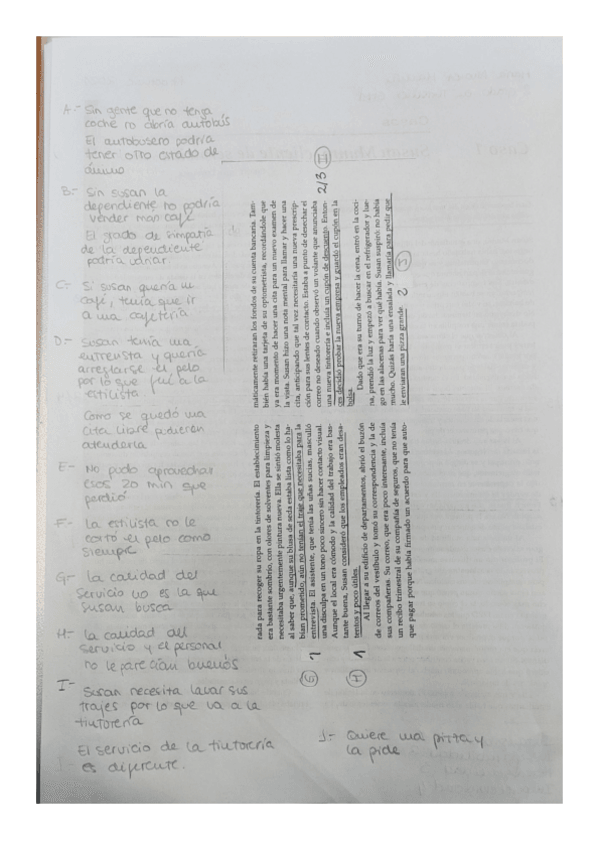 A.- Sin gente que no tenga
coche no abría autobús
El autobusero podría
tener otro estado de
ánimo
B.- Sin susan la
dependiente no podría
vender mas café
El grado de simpatía
de la dependiente
podría variar.
C.- Si susan quería un
café, tenía que ir
a una cafetería
D.- Susan tenía una
entrevista y quería
arreglarse el pelo
por lo que fue a la
estilista
Como se quedó una
cita libre pudieron
atenderla
E- No pudo aprovechar
esos 20 min que
perdió
F- La estilista no le
cortó el pelo como
siempre
G- La calidad del
servicio no es la que
susan busca
H- La calidad del
servicio y el personal
no le parecían buenos
I- Susan necesita lavar sus
trajes por lo que va a la
tintorería
El servicio de la tintorería
es diferente.
J- Quiere una pizza y
la pide
rada para recoger su ropa en la tintorería. El establecimiento
era bastante sombrío, con olores de solventes para limpieza y
necesitaba urgentemente pintura nueva. Ella se sintió molesta
al saber que, aunque su blusa de seda estaba lista como lo ha-
bían prometido, aún no tenían el traje que necesitaba para la
entrevista. El asistente, que tenía las uñas sucias, masculló
una disculpa en un tono poco sincero sin hacer contacto visual.
Aunque el local era cómodo y la calidad del trabajo era bas-
tante buena, Susan consideró que los empleados eran desa-
tentos y poco útiles.
Al llegar a su edificio de departamentos, abrió el buzón
de correos del vestíbulo y tomó su correspondencia y la de
sus compañeras. Su correo, que era poco interesante, incluía
un recibo trimestral de su compañía de seguros, que no tenía
que pagar porque había firmado un acuerdo para que auto-
G 1
H 1
máticamente retiraran los fondos de su cuenta bancaria. Tam-
bién había una tarjeta de su optometrista, recordándole que
ya era momento de hacer una cita para un nuevo examen de
la vista. Susan hizo una nota mental para llamar y hacer una
cita, anticipando que tal vez necesitaría una nueva prescrip-
ción para sus lentes de contacto. Estaba a punto de desechar el
correo no deseado cuando observó un volante que anunciaba
una nueva tintorería e incluía un cupón de descuento. Enton-
ces decidió probar la nueva empresa y guardó el cupón en la
bolsa.
Dado que era su turno de hacer la cena, entró en la coci-
na, prendió la luz y empezó a buscar en el refrigerador y lue-
go en las alacenas para ver qué había. Susan suspiró: no había
mucho. Quizás haría una ensalada y llamaría para pedir que
le enviaran una pizza grande.
2/3 I
2 J